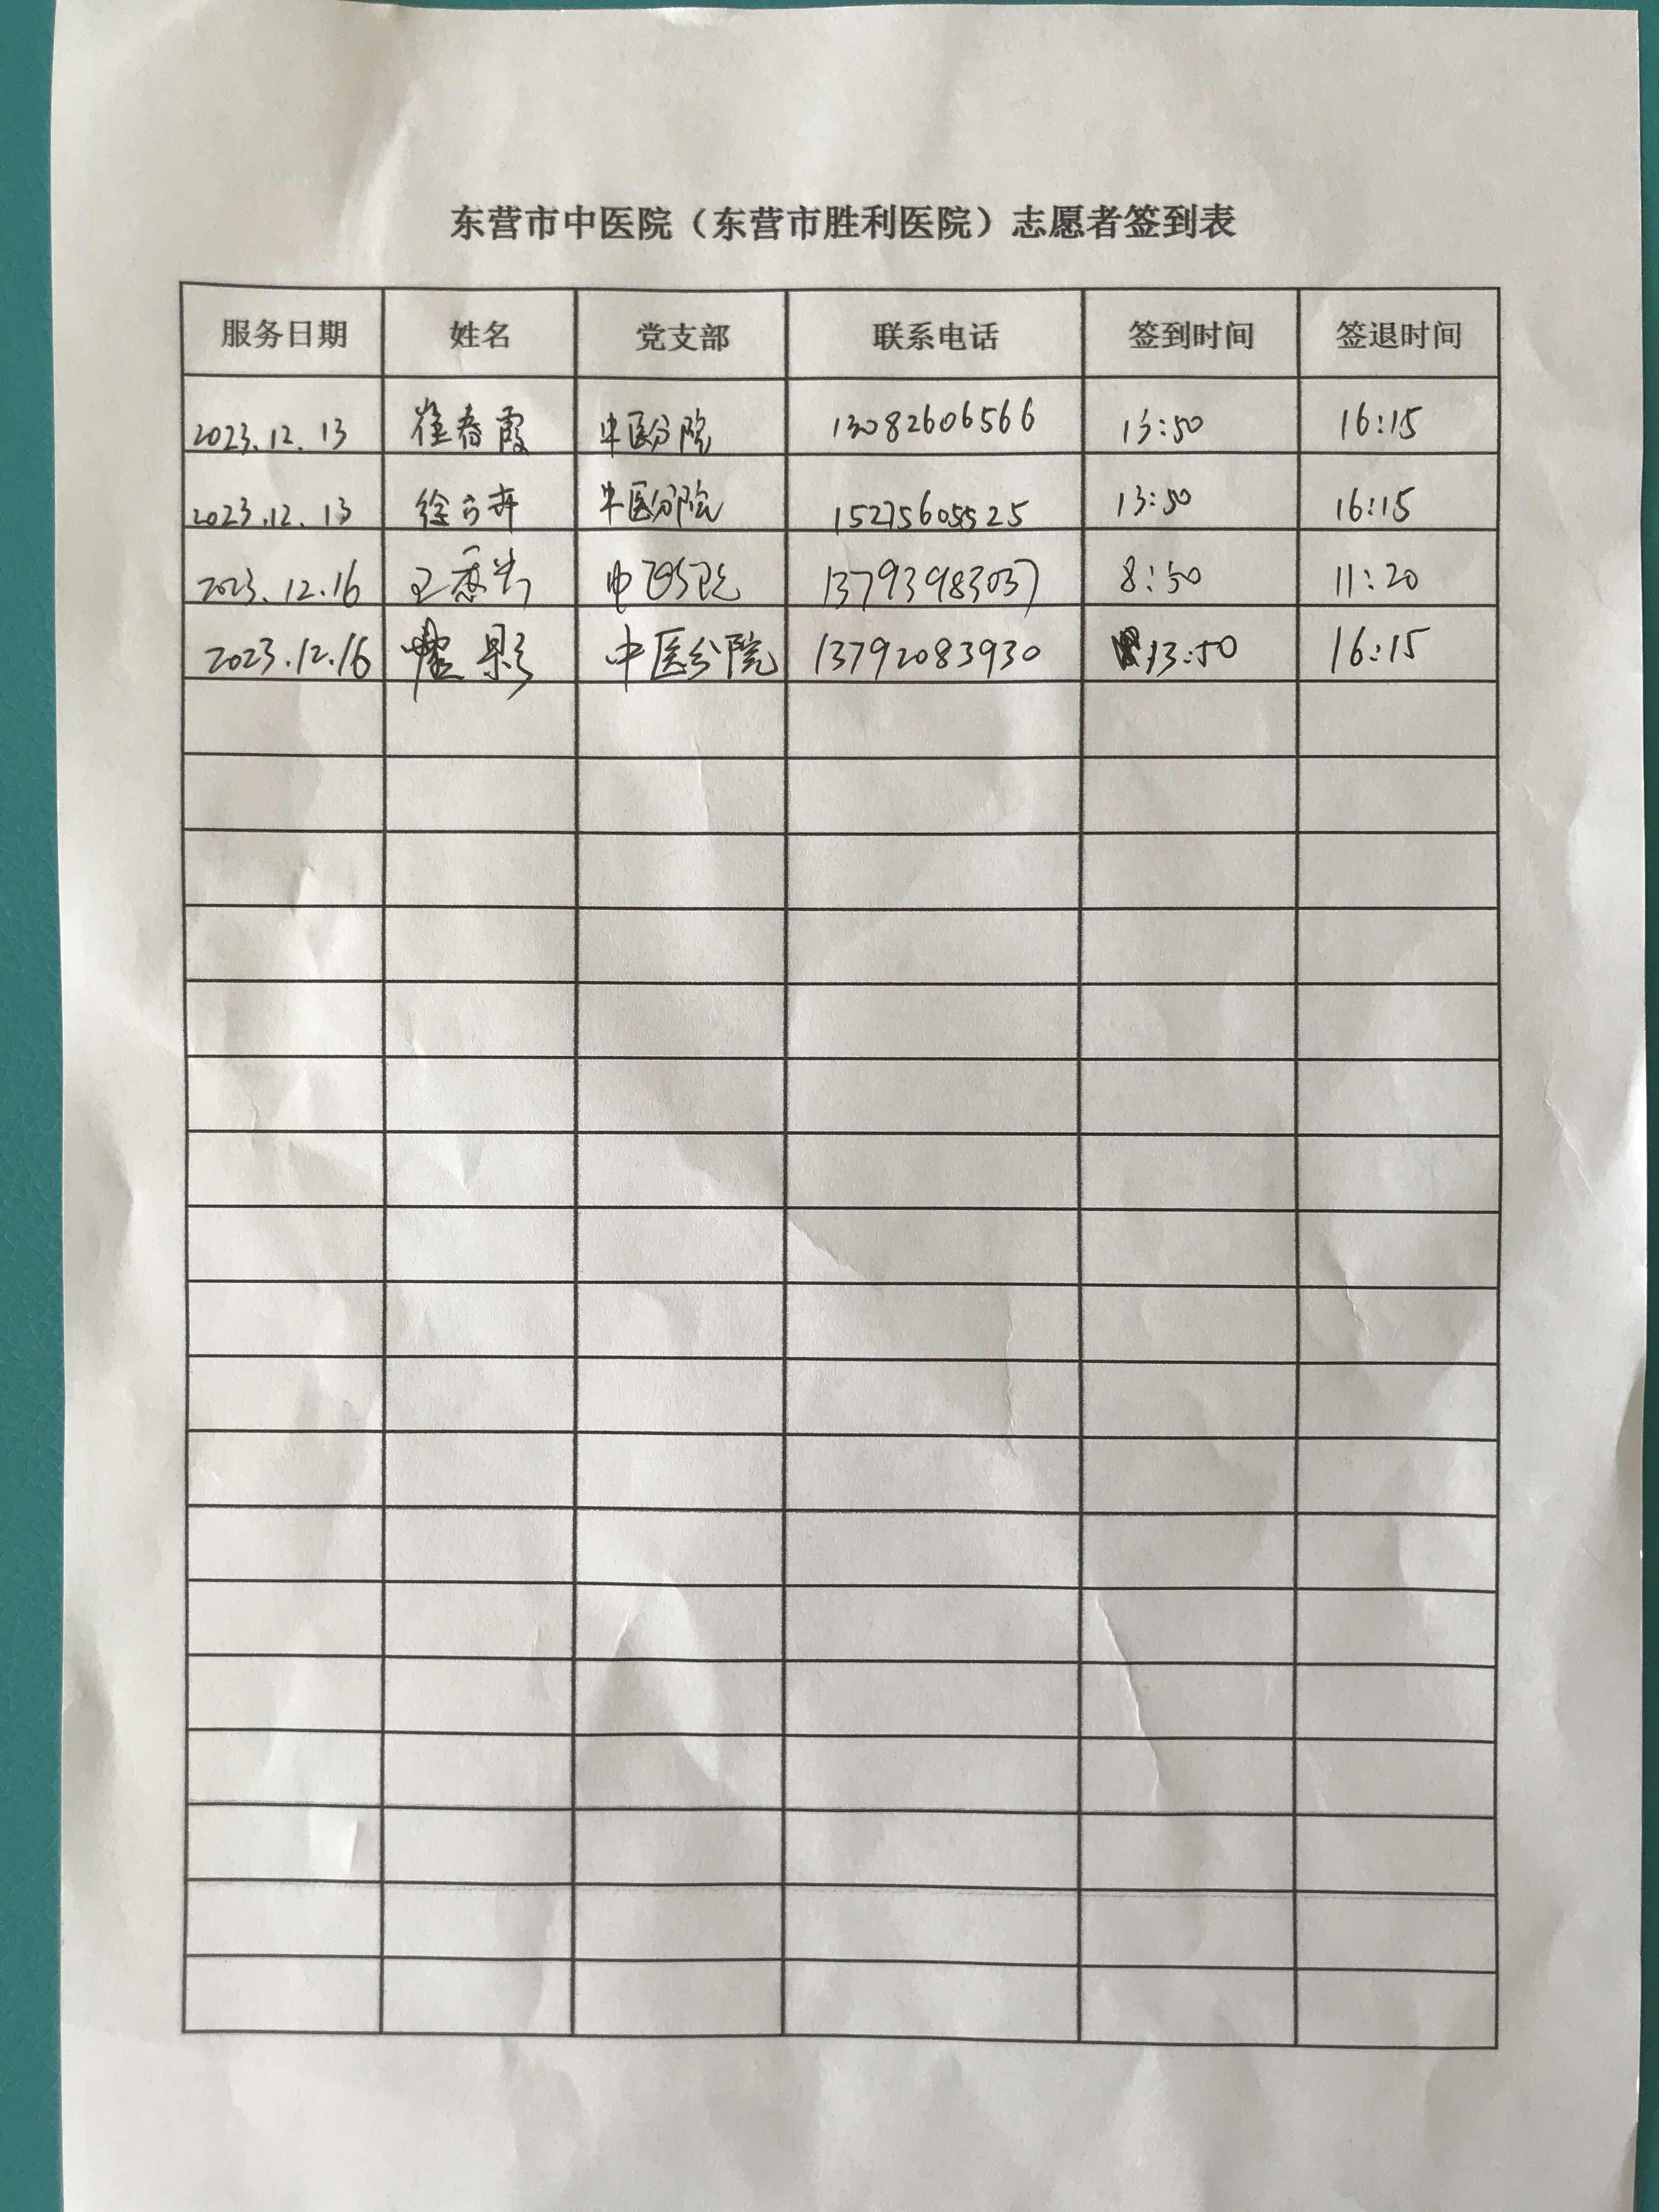 东营市中医院（东营市胜利医院）志愿者签到表
服务日期 姓名 党支部 联系电话 签到时间 签退时间
2023.12.13 崔春霞 中医分院 13082606566 13:50 16:15
2023.12.13 徐 中医分院 15275605525 13:50 16:15
2023.12.16 王 中医分院 13793983037 8:50 11:20
2023.12.16 影 中医分院 13792083930 13:50 16:15